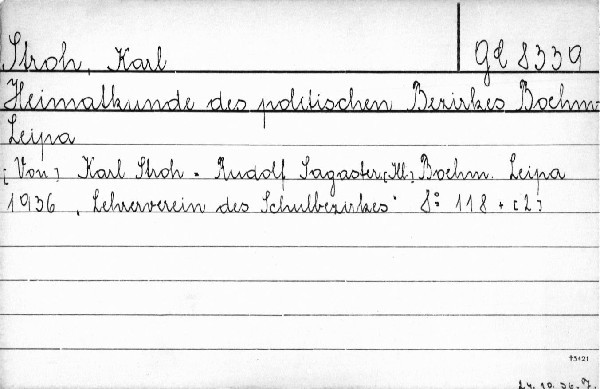 Stroh, Karl
Gd 8339
Heimatkunde des politischen Bezirkes Boehm.
Leipa
[Von] Karl Stroh - Rudolf Sagaster, [Ill.] Boehm. Leipa
1936 „Lehrerverein des Schulbezirkes“ 8° 118 + [2]
73121
24.10.36.7.